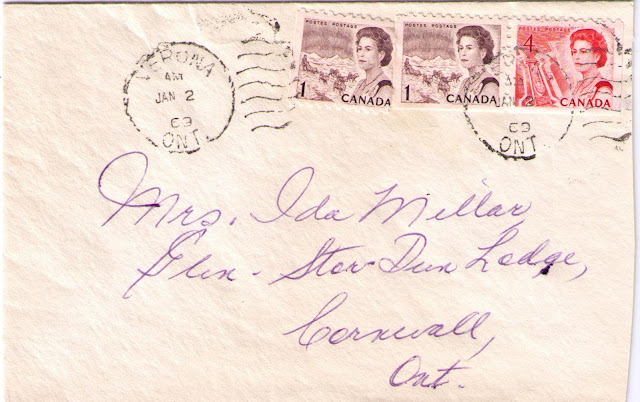 VERONA
AM
JAN 2
69
ONT.
POSTES POSTAGE
1
CANADA
POSTES POSTAGE
1
CANADA
POSTES POSTAGE
4
CANADA
69
ONT.
Mrs. Ida Millar,
Glen-Stor-Dun Lodge,
Cornwall,
Ont.